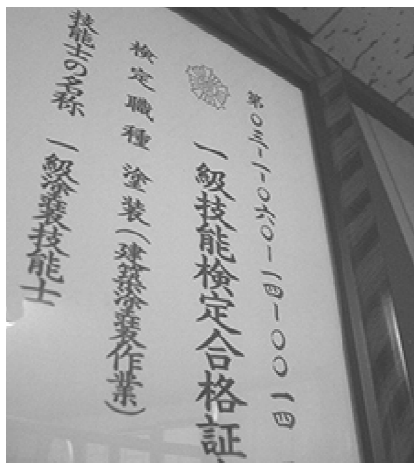 第〇三-一-〇六〇-一四-〇〇一四
一級技能検定合格証
検定職種 塗装(建築塗装作業)
技能士の名称 一級塗装技能士